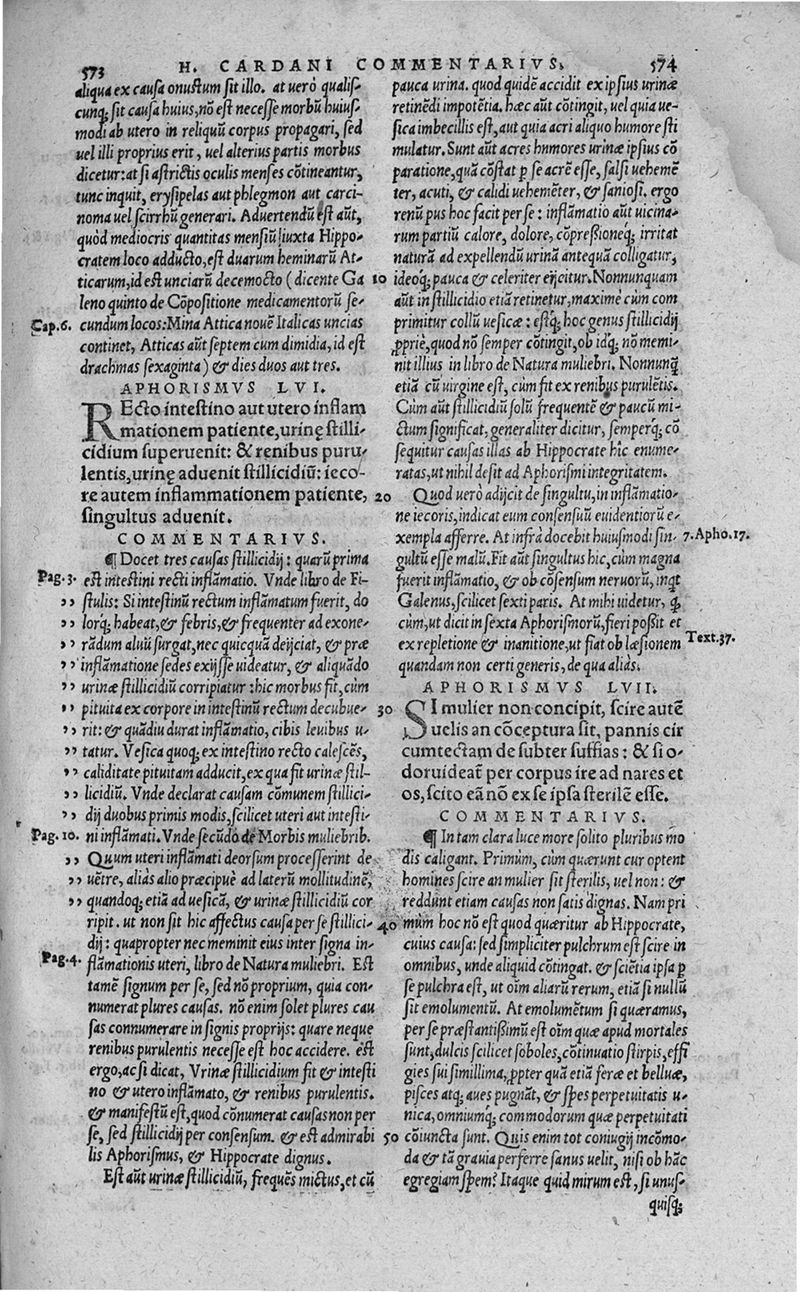 573 H. CARDANI COMMENTARIVS. 574
aliqua ex causa onustum sit illo. at uerò qualiſ-
cunq; sit causa huius, nõ est necesse morbũ huius-
modi ab utero in reliquũ corpus propagari, sed
uel illi proprius erit, uel alterius partis morbus
dicetur: at si astrictis oculis menses cõtineantur,
tunc inquit, erysipelas aut phlegmon aut carci-
noma uel scirrhũ generari. Aduertendũ est aũt,
quòd mediocris quantitas mensiũ iuxta Hippo-
cratem loco adducto, est duarum heminarũ At-
ticarum, id est unciarũ decemocto (dicente Ga
leno quinto de Cõpositione medicamentorũ se-
Cap.6. cundum locos: Mina Attica nouẽ Italicas uncias
continet, Atticas aũt septem cum dimidia, id est
drachmas sexaginta) & dies duos aut tres.
APHORISMVS LVI.
REcto intestino aut utero inflam
mationem patiente, urinę stilli-
cidium superuenit: & renibus puru-
lentis, urinę aduenit stillicidiũ: ieco-
re autem inflammationem patiente,
singultus aduenit.
COMMENTARIVS.
¶ Docet tres causas stillicidij: quarũ prima
Pag.3. est intestini recti inflãmatio. Vnde libro de Fi-
,, stulis: Si intestinũ rectum inflãmatum fuerit, do
,, lorq; habeat, & febris, & frequenter ad exone-
,, rãdum aluũ surgat, nec quicquã deijciat, & præ
,, inflãmatione sedes exijsse uideatur, & aliquãdo
,, urinæ stillicidium corripiatur: hic morbus fit, cùm
,, pituita ex corpore in intestinũ rectum decubue-
,, rit: & quãdiu durat inflãmatio, cibis leuibus u-
,, tatur. Vesica quoq; ex intestino recto calescẽs,
,, caliditate pituitam adducit, ex qua fit urinæ stil-
,, licidiũ. Vnde declarat causam cõmunem stillici-
dij duobus primis modis, scilicet uteri aut intesti-
Pag. 10. ni inflãmati. Vnde secũdo de Morbis muliebrib.
,, Quum uteri inflãmati deorsum processerint de
,, uẽtre, aliàs alio præcipuè ad laterũ mollitudinẽ,
,, quandoq; etiã ad uesicã, & urinæ stillicidiũ cor
ripit. ut non sit hic affectus causa per se stillici-
dij: quapropter nec meminit eius inter signa in-
Pag.4. flãmationis uteri, libro de Natura muliebri. Est
tamẽ signum per se, sed nõ proprium, quia con-
numerat plures causas. nõ enim solet plures cau
sas connumerare in signis proprijs: quare neque
renibus purulentis necesse est hoc accidere. est
ergo, ac si dicat, Vrinæ stillicidium fit & intesti
no & utero inflãmato, & renibus purulentis.
& manifestũ est, quod cõnumerat causas non per
se, sed stillicidij per consensum. & est admirabi
lis Aphorismus, & Hippocrate dignus.
Est aũt urinæ stillicidiũ, frequẽs mictus, et cũ
pauca urina. quod quidẽ accidit ex ipsius urinæ
retinẽdi impotẽtia. hæc aũt cõtingit, uel quia ue-
sica imbecillis est, aut quia acri aliquo humore sti
mulatur. Sunt aũt acres humores urinæ ipsius cõ
paratione, quã cõstat p se acrẽ esse, salsi uehemẽ
ter, acuti, & calidi uehemẽter, & saniosi. ergo
renũ pus hoc facit per se: inflãmatio aũt uicina-
rum partiũ calore, dolore, cõpreßioneq; irritat
naturã ad expellendũ urinã antequã colligatur,
10 ideoq; pauca & celeriter eijcitur. Nonnunquam
aũt in stillicidio etiã retinetur, maxime cùm com
primitur collũ uesicæ: estq; hoc genus stillicidij
ppriè, quod nõ semper cõtingit, ob idq; nõ memi-
nit illius in libro de Natura muliebri. Nonnunq̃
etiã cũ uirgine est, cùm fit ex renibus purulẽtis.
Cùm aũt stillicidiũ solũ frequentẽ & paucũ mi-
ctum significat, generaliter dicitur, semperq; cõ
sequitur causas illas ab Hippocrate hîc enume-
ratas, ut nihil desit ad Aphorismi integritatem.
20 Quod uerò adijcit de singultu, in inflãmatio-
ne iecoris, indicat eum consensiũ euidentiorũ e-
xempla afferre. At infrà docebit huiusmodi sin- 7. Apho. 17.
gultũ esse malũ. Fit aũt singultus hic, cùm magna
fuerit inflãmatio, & ob cõsensum neruorũ, inqt
Galenus, scilicet sexti paris. At mihi uidetur, q̃
cùm, ut dicit in sexta Aphorismorũ, fieri poßit et
ex repletione & inanitione, ut fiat ob læsionem Text.37.
quandam non certi generis, de qua aliàs.
APHORISMVS LVII.
30 SI mulier non concipit, scire autẽ
uelis an cõceptura sit, pannis cir
cumtectam de subter suffias: & si o-
dor uideat̃ per corpus ire ad nares et
os, scito eã nõ ex se ipsa sterilẽ esse.
COMMENTARIVS.
¶ In tam clara luce more solito pluribus mo
dis caligant. Primùm, cùm quærunt cur optent
homines scire an mulier sit sterilis, uel non: &
reddunt etiam causas non satis dignas. Nam pri
40 mùm hoc nõ est quod quæritur ab Hippocrate,
cuius causa: sed simpliciter pulchrum est scire in
omnibus, unde aliquid cõtingat. & sciẽtia ipsa p
se pulchra est, ut oĩm aliarũ rerum, etiã si nullũ
sit emolumentũ. At emolumẽtum si quæramus,
per se præstantißimũ est oĩm quæ apud mortales
sunt, dulcis scilicet soboles, cõtinuatio stirpis, effi
gies sui simillima, ppter quã etiã feræ et belluæ,
pisces atq; aues pugnãt, & spes perpetuitatis u-
nica, omniumq; commodorum quæ perpetuitati
50 cõiuncta sunt. Quis enim tot coniugij incõmo-
da & tã grauia perferre sanus uelit, nisi ob hãc
egregiam spem? Itaque quid mirum est, si unus-
quisq;